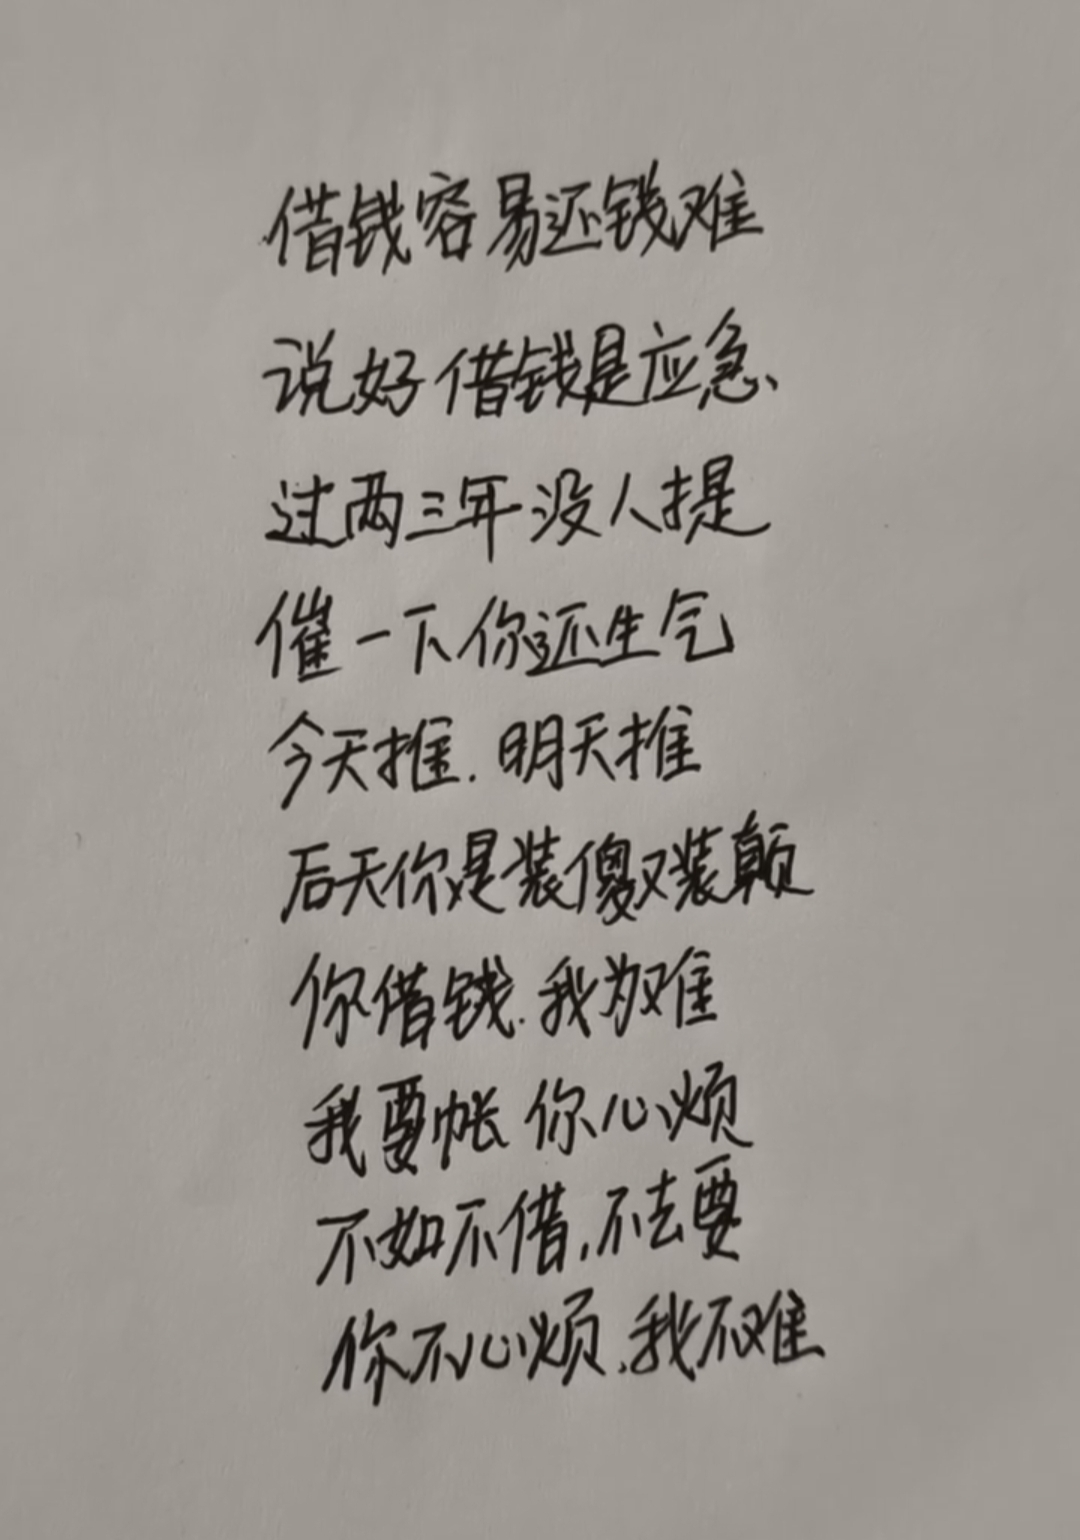 借钱容易还钱难
说好借钱是应急、
过两三年没人提
催一下你还生气
今天推.明天推
后天你是装傻又装颠
你借钱.我为难
我要帐你心烦
不如不借,不去要
你不心烦.我不难